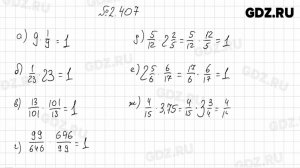 GDZ.RU
№2.407
а) 9 1/9 = 1
б) 1/23 · 23 = 1
в) 13/101 · 101/13 = 1
г) 99/646 · 646/99 = 1
д) 5/12 · 2 2/5 = 5/12 · 12/5 = 1
е) 2 5/6 · 6/17 = 17/6 · 6/17 = 1
ж) 4/15 · 3,75 = 4/15 · 3 3/4 =
GDZ.RU